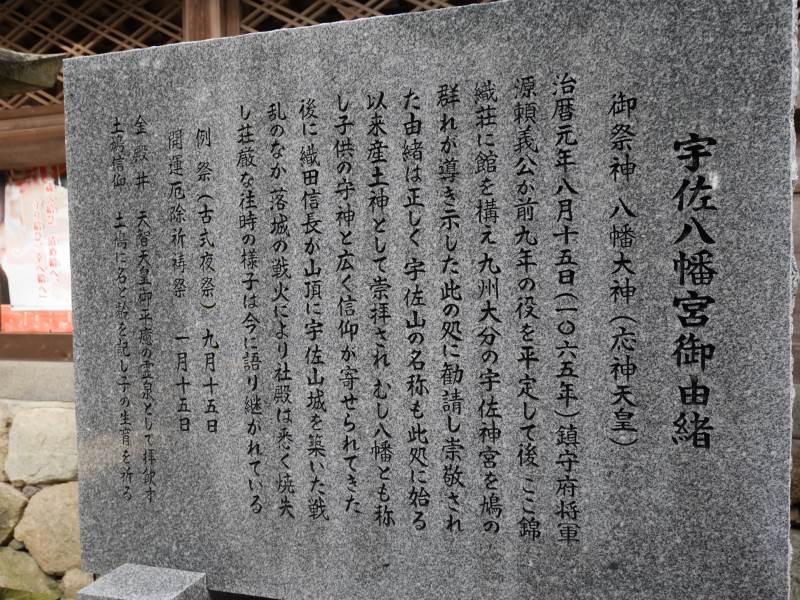 宇佐八幡宮御由緒
御祭神 八幡大神(応神天皇)
治暦元年八月十五日(一〇六五年)鎮守府将軍
源頼義公が前九年の役を平定して後ここ錦
織荘に館を構え九州大分の宇佐神宮を鳩の
群れが導き示した此の処に勧請し崇敬され
た由緒は正しく 宇佐山の名称も此処に始る
以来産土神として崇拝されむし八幡とも称
し子供の守神と広く信仰が寄せられてきた
後に織田信長が山頂に宇佐山城を築いた戦
乱のなか落城の戦火により社殿は悉く焼失
し荘厳な往時の様子は今に語り継がれている
例祭(古式夜祭) 九月十五日
開運厄除祈祷祭 一月十五日
金殿井 天智天皇御平癒の霊泉として拝飲す
土鳩信仰 土鳩に名と齢を記し子の生育を祈る